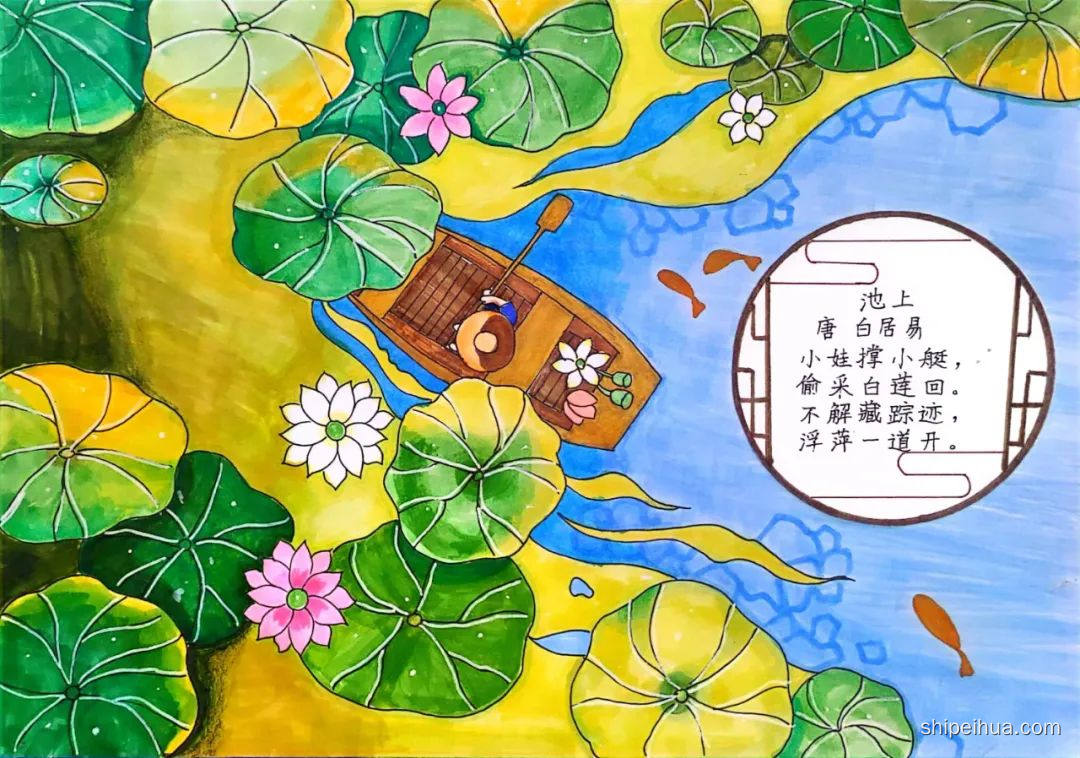 池上
唐 白居易
小娃撑小艇，
偷采白莲回。
不解藏踪迹，
浮萍一道开。
shipeihua.com